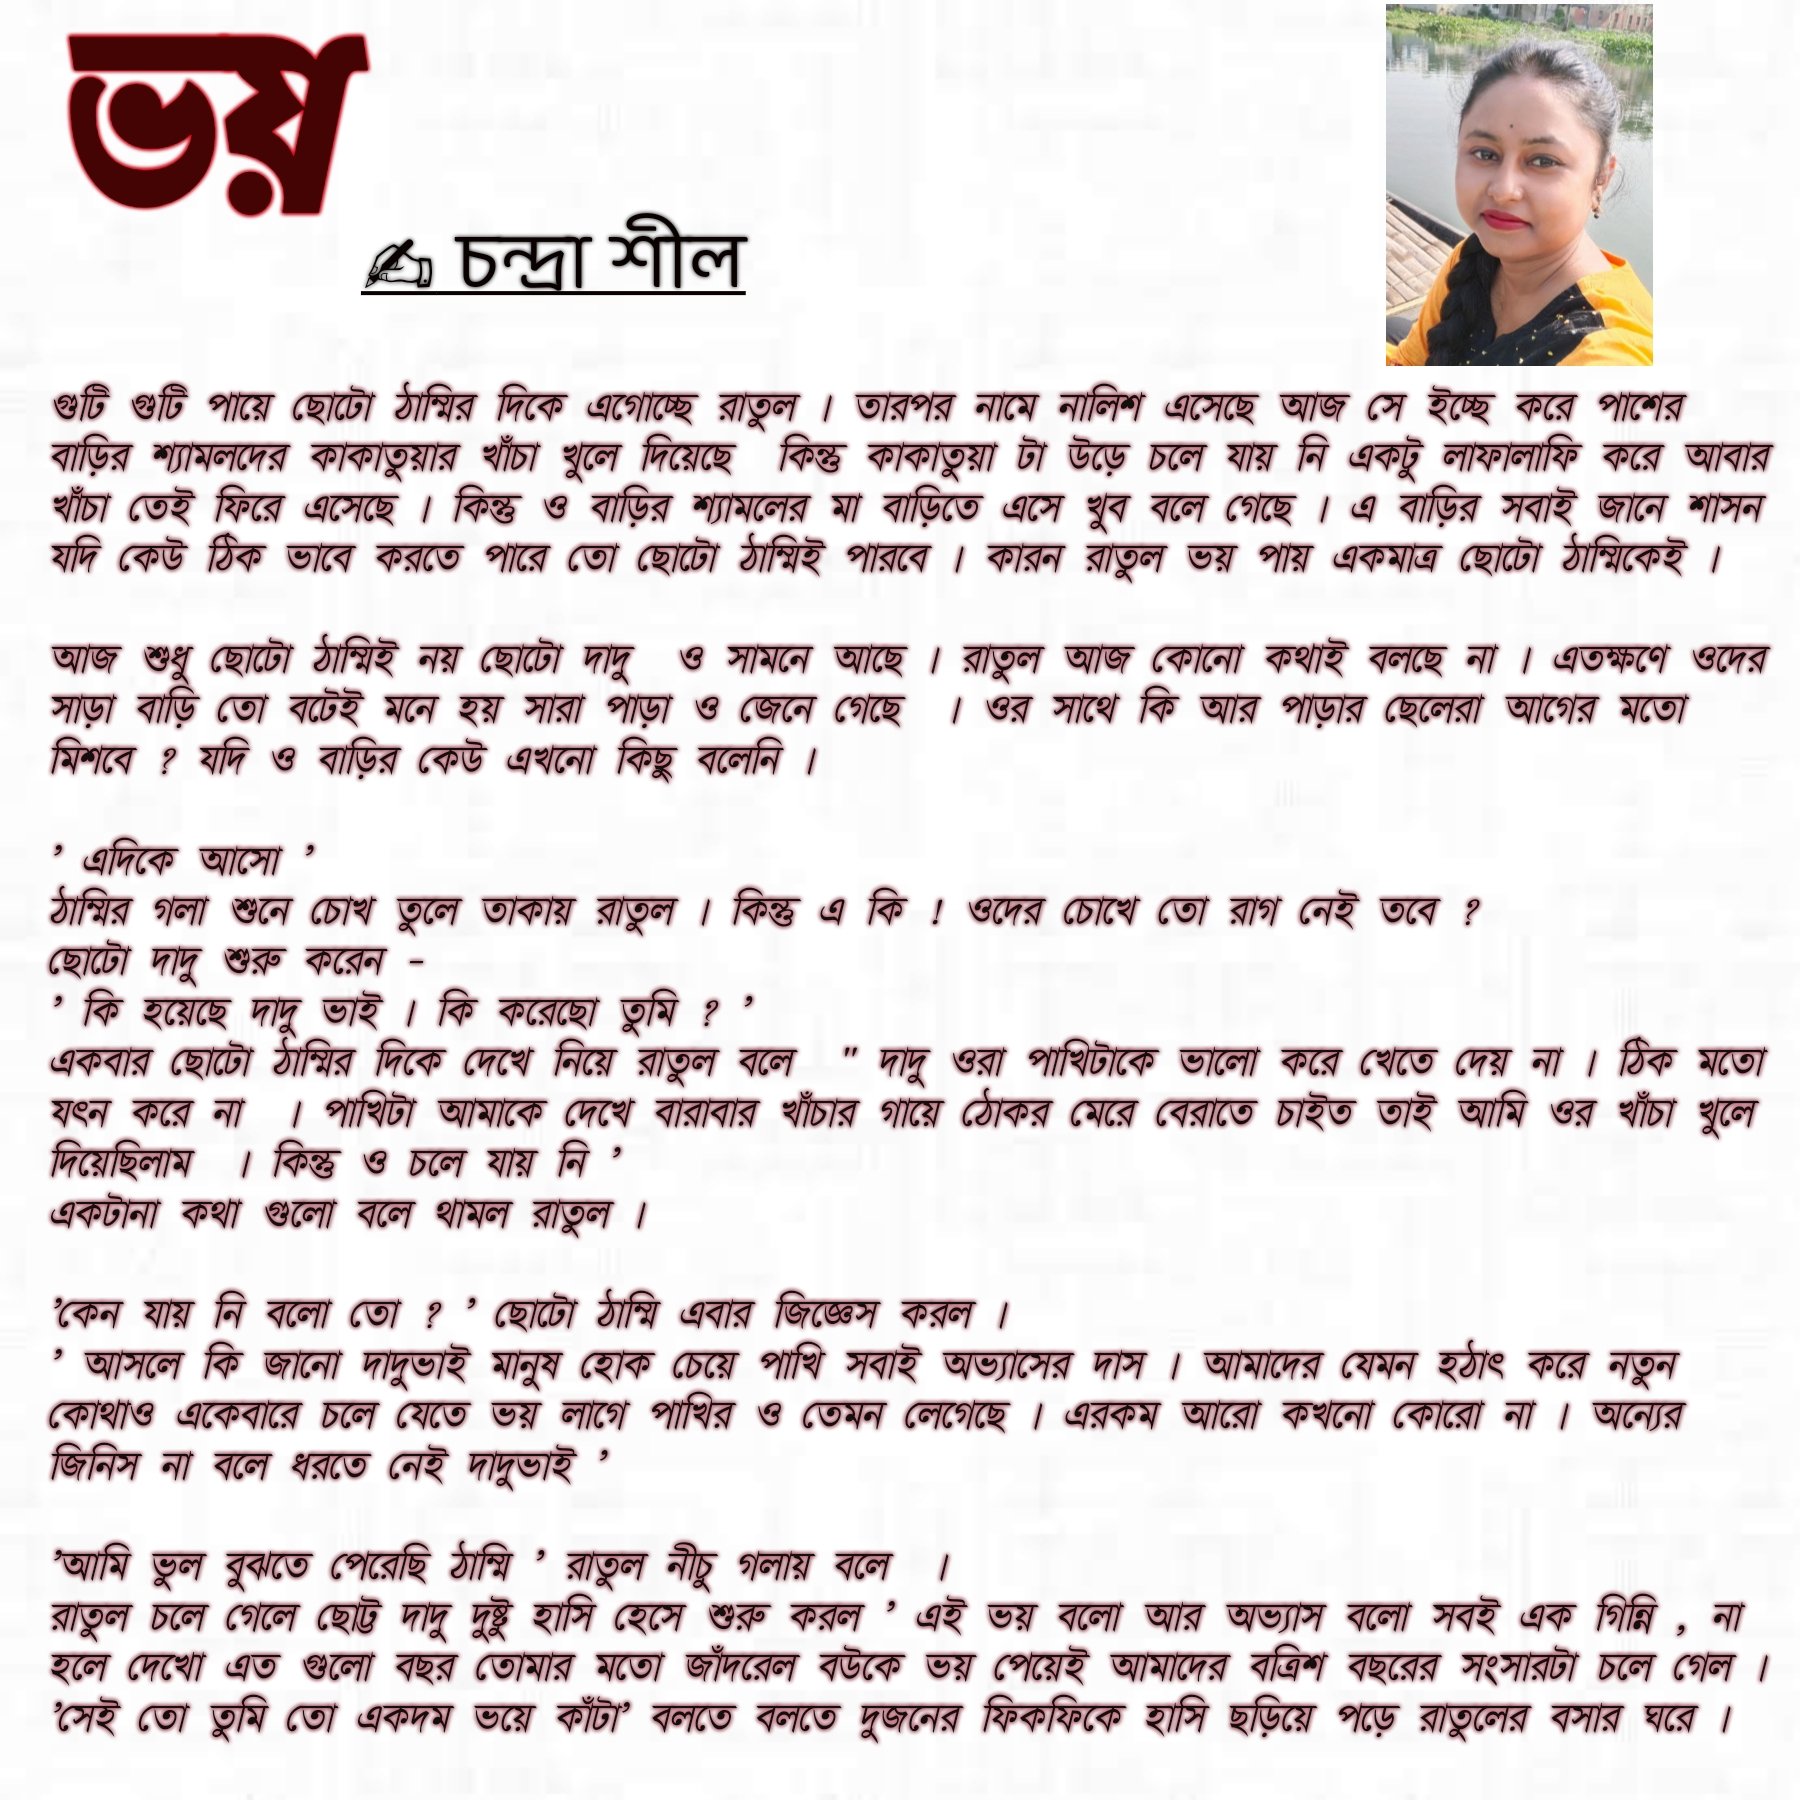 ভয়
✍ চন্দ্রা শীল
গুটি গুটি পায়ে ছোটো ঠাম্মির দিকে এগোচ্ছে রাতুল । তারপর নামে নালিশ এসেছে আজ সে ইচ্ছে করে পাশের
বাড়ির শ্যামলদের কাকাতুয়ার খাঁচা খুলে দিয়েছে কিন্তু কাকাতুয়া টা উড়ে চলে যায় নি একটু লাফালাফি করে আবার
খাঁচা তেই ফিরে এসেছে । কিন্তু ও বাড়ির শ্যামলের মা বাড়িতে এসে খুব বলে গেছে । এ বাড়ির সবাই জানে শাসন
যদি কেউ ঠিক ভাবে করতে পারে তো ছোটো ঠাম্মিই পারবে । কারন রাতুল ভয় পায় একমাত্র ছোটো ঠাম্মিকেই ।
আজ শুধু ছোটো ঠাম্মিই নয় ছোটো দাদু ও সামনে আছে । রাতুল আজ কোনো কথাই বলছে না । এতক্ষণে ওদের
সাড়া বাড়ি তো বটেই মনে হয় সারা পাড়া ও জেনে গেছে । ওর সাথে কি আর পাড়ার ছেলেরা আগের মতো
মিশবে ? যদি ও বাড়ির কেউ এখনো কিছু বলেনি ।
’ এদিকে আসো ’
ঠাম্মির গলা শুনে চোখ তুলে তাকায় রাতুল । কিন্তু এ কি ! ওদের চোখে তো রাগ নেই তবে ?
ছোটো দাদু শুরু করেন -
’ কি হয়েছে দাদু ভাই । কি করেছো তুমি ? ’
একবার ছোটো ঠাম্মির দিকে দেখে নিয়ে রাতুল বলে " দাদু ওরা পাখিটাকে ভালো করে খেতে দেয় না । ঠিক মতো
যৎন করে না । পাখিটা আমাকে দেখে বারাবার খাঁচার গায়ে ঠোকর মেরে বেরাতে চাইত তাই আমি ওর খাঁচা খুলে
দিয়েছিলাম । কিন্তু ও চলে যায় নি ’
একটানা কথা গুলো বলে থামল রাতুল ।
’কেন যায় নি বলো তো ? ’ ছোটো ঠাম্মি এবার জিজ্ঞেস করল ।
’ আসলে কি জানো দাদুভাই মানুষ হোক চেয়ে পাখি সবাই অভ্যাসের দাস । আমাদের যেমন হঠাৎ করে নতুন
কোথাও একেবারে চলে যেতে ভয় লাগে পাখির ও তেমন লেগেছে । এরকম আরো কখনো কোরো না । অন্যের
জিনিস না বলে ধরতে নেই দাদুভাই ’
’আমি ভুল বুঝতে পেরেছি ঠাম্মি ’ রাতুল নীচু গলায় বলে ।
রাতুল চলে গেলে ছোট্ট দাদু দুষ্টু হাসি হেসে শুরু করল ’ এই ভয় বলো আর অভ্যাস বলো সবই এক গিন্নি , না
হলে দেখো এত গুলো বছর তোমার মতো জাঁদরেল বউকে ভয় পেয়েই আমাদের বত্রিশ বছরের সংসারটা চলে গেল ।
’সেই তো তুমি তো একদম ভয়ে কাঁটা’ বলতে বলতে দুজনের ফিকফিকে হাসি ছড়িয়ে পড়ে রাতুলের বসার ঘরে ।